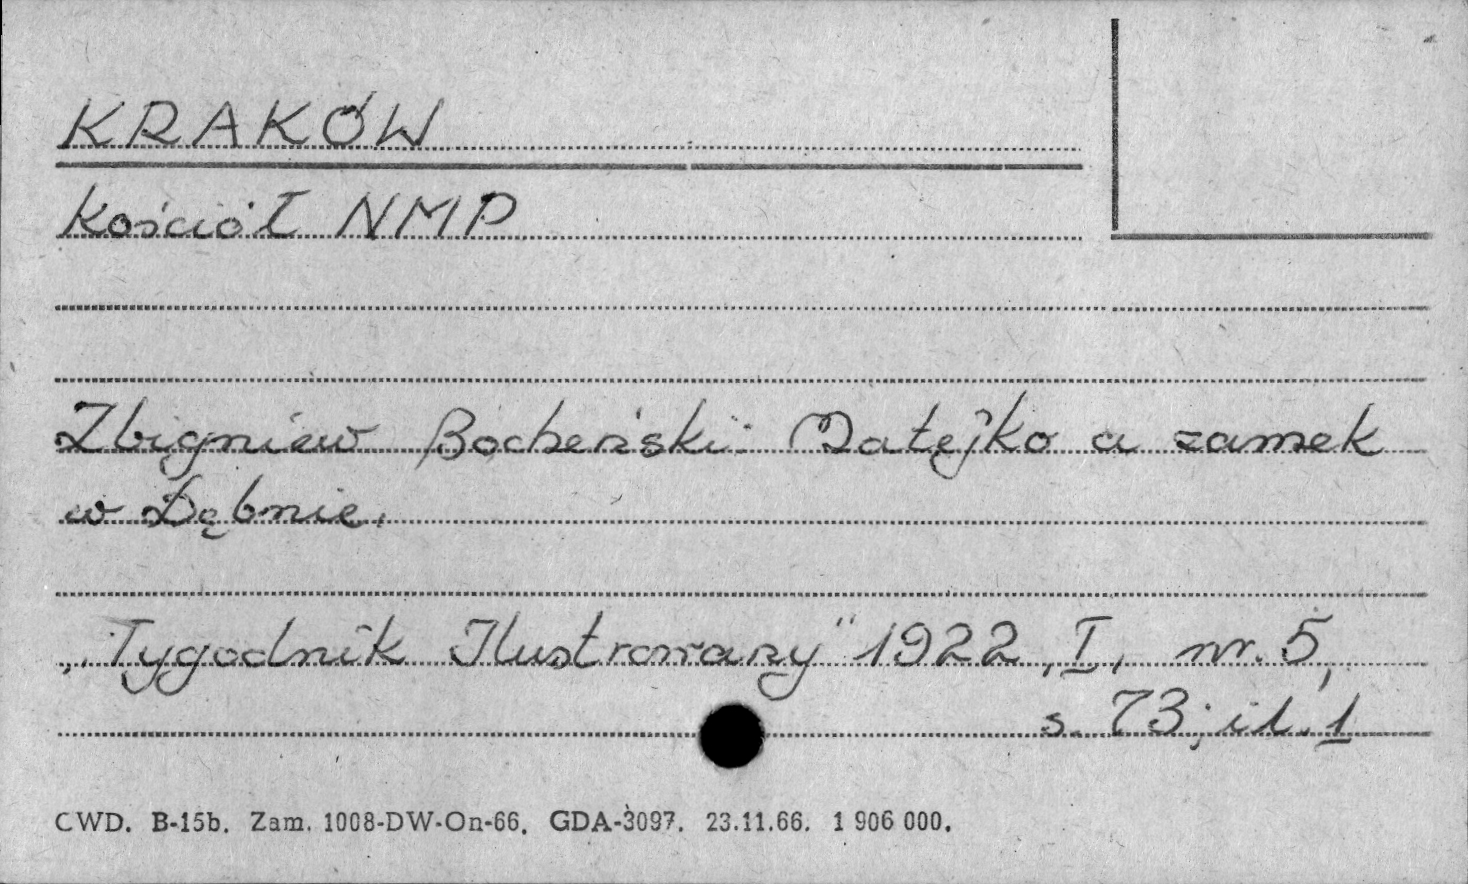 KRAKÓW
Kościół NMP
Zbigniew Bocheński: Matejko a zamek
w Dębnie.
„Tygodnik Ilustrowany" 1922, I, nr. 5,
s. 73; il. 1
CWD. B-15b. Zam. 1008-DW-On-66. GDA-3097. 23.11.66. 1 906 000.